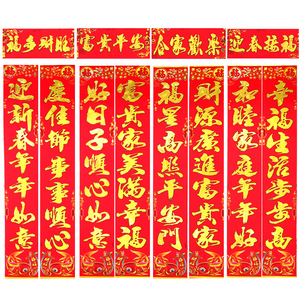 福多财旺
富贵平安
合家歡樂
迎春接福
迎新春年年如意
慶佳節事事順心
好日子順心如意
富贵家美满幸福
福星高照平安門
财源廣進富贵家
和睦家庭年年好
幸福生活步步高